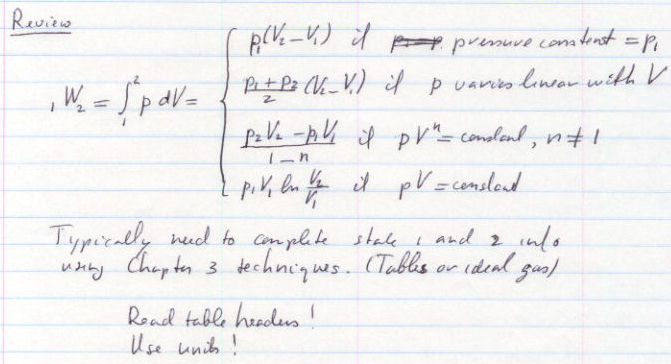 Review
p₁(V₂-V₁) if pressure constant = p₁
(p₁+p₂)/2 (V₂-V₁) if p varies linear with V
₁W₂ = ∫₁² p dV =
(p₂V₂ - p₁V₁)/(1-n) if pVⁿ = constant, n ≠ 1
p₁V₁ ln V₂/V₁ if pV = constant
Typically need to complete state 1 and 2 info
using Chapter 3 techniques. (Tables or ideal gas)
Read table headers!
Use units!